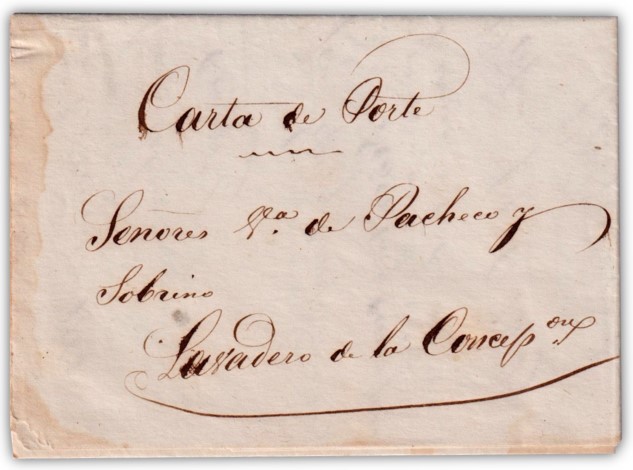 Carta de Porte
Señores Vª. de Pacheco y
Sobrino
Lavadero de la Concepon